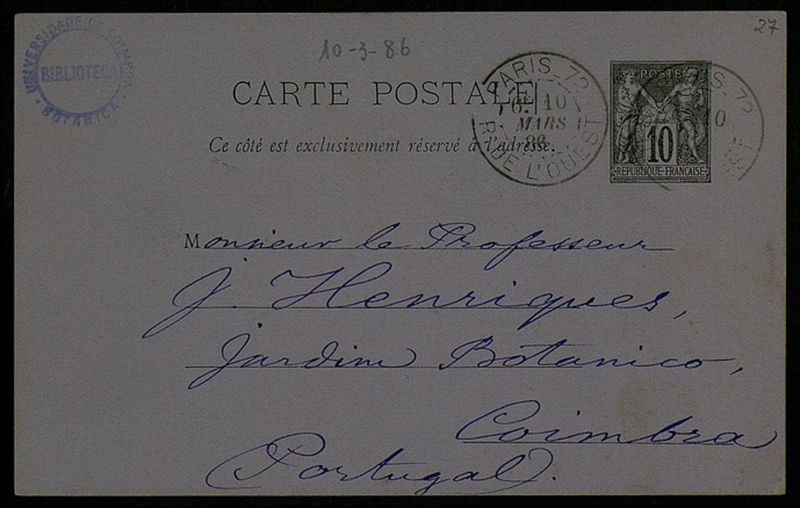 27
10-3-86
UNIVERSIDADE DE COIMBRA
BIBLIOTECA
BOTANICA
CARTE POSTALE
Ce côté est exclusivement réservé à l'adresse.
PARIS_72
10
MARS
86
R. DE L'OUEST
POSTES
10
REPUBLIQUE FRANÇAISE
Monsieur le Professeur
J. Henriques,
Jardim Botanico,
Coimbra
(Portugal).